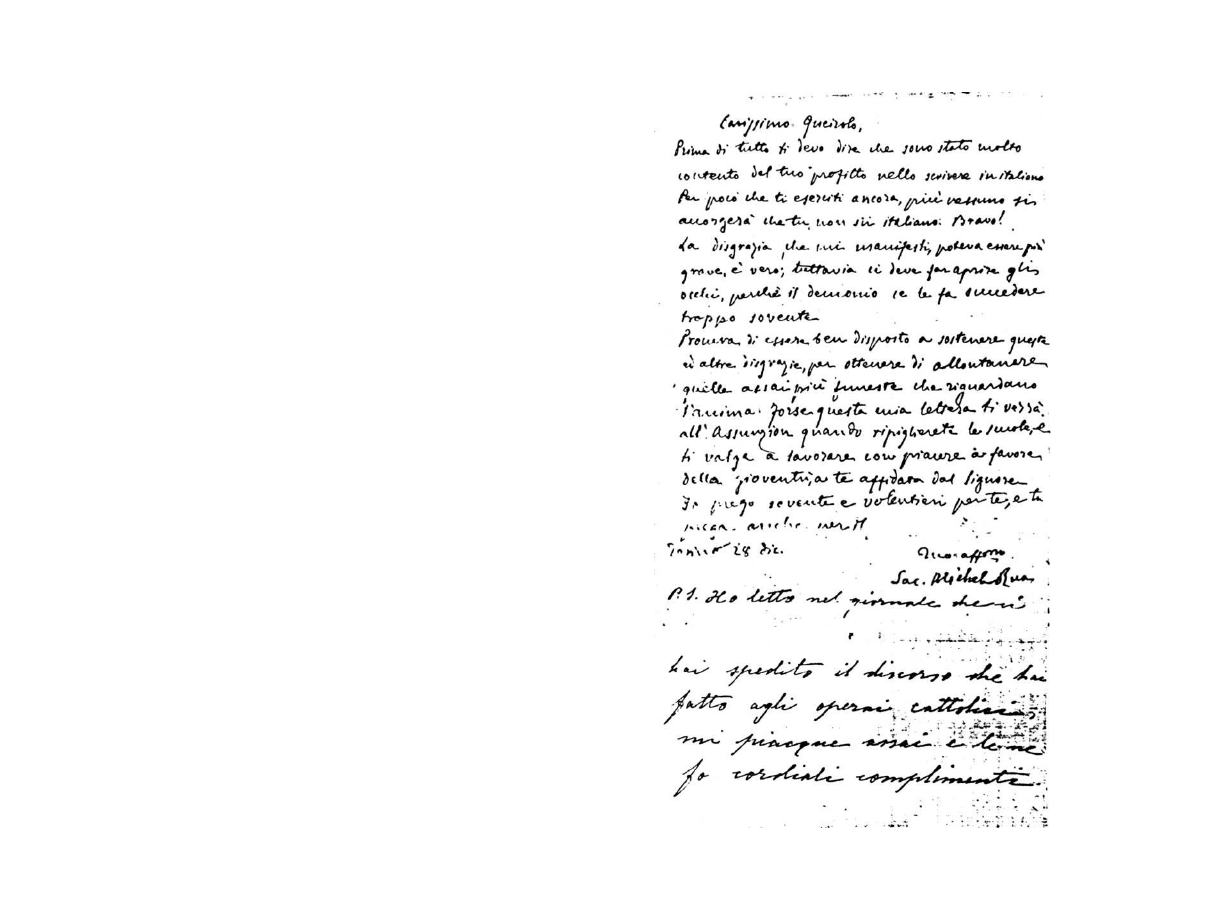 Carissimo Queirolo,
Prima di tutto ti devo dire che sono stato molto
contento del tuo profitto nello scrivere in italiano
Per poco che ti eserciti ancora, più nessuno si
accorgerà che tu non sii italiano. Bravo!
La disgrazia che mi manifesti, poteva essere più
grave, è vero; tuttavia ci deve far aprire gli
occhi, perchè il demonio ce le fa succedere
troppo sovente
Procura di essere ben disposto a sostenere questa
ed altre disgrazie, per ottenere di allontanare
quelle assai più funeste che riguardano
l'anima. Forse questa mia lettera ti verrà
all'Assunzion quando ripiglierete le scuole, e
ti valga a lavorare con piacere a favore
della gioventù a te affidata dal Signore
Io prego sovente e volentieri per te, e tu
anche per il
Torino 28 Dic.
Tuo aff.mo
Sac. Michel Rua
P.S. Ho letto nel giornale che ci
hai spedito il discorso che hai
fatto agli operai cattolici;
mi piacque assai e te ne
fo cordiali complimenti.